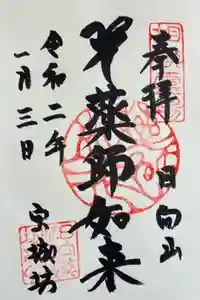 奉拝
日向山
薬師如来
宝城坊
令和二年
一月三日